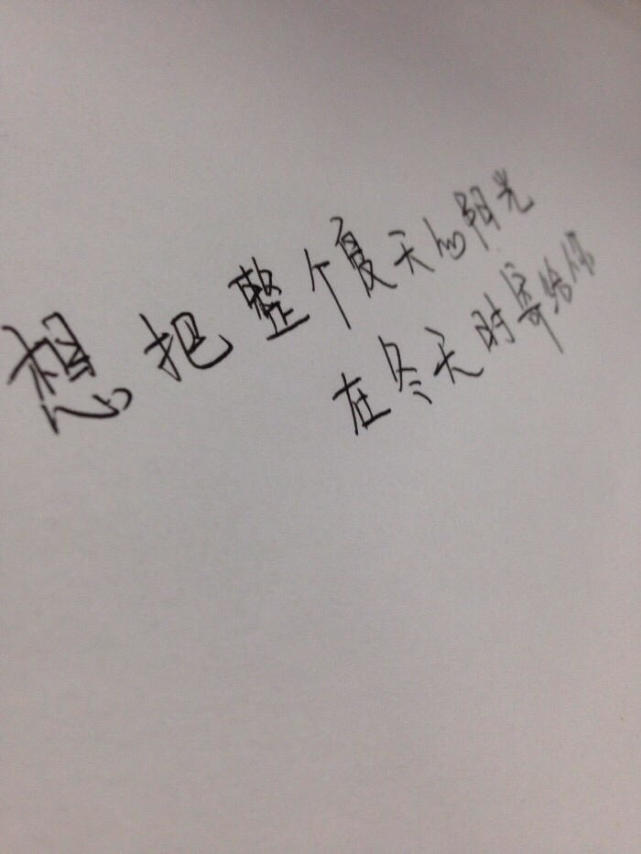 想把整个夏天的阳光
在冬天时寄给你